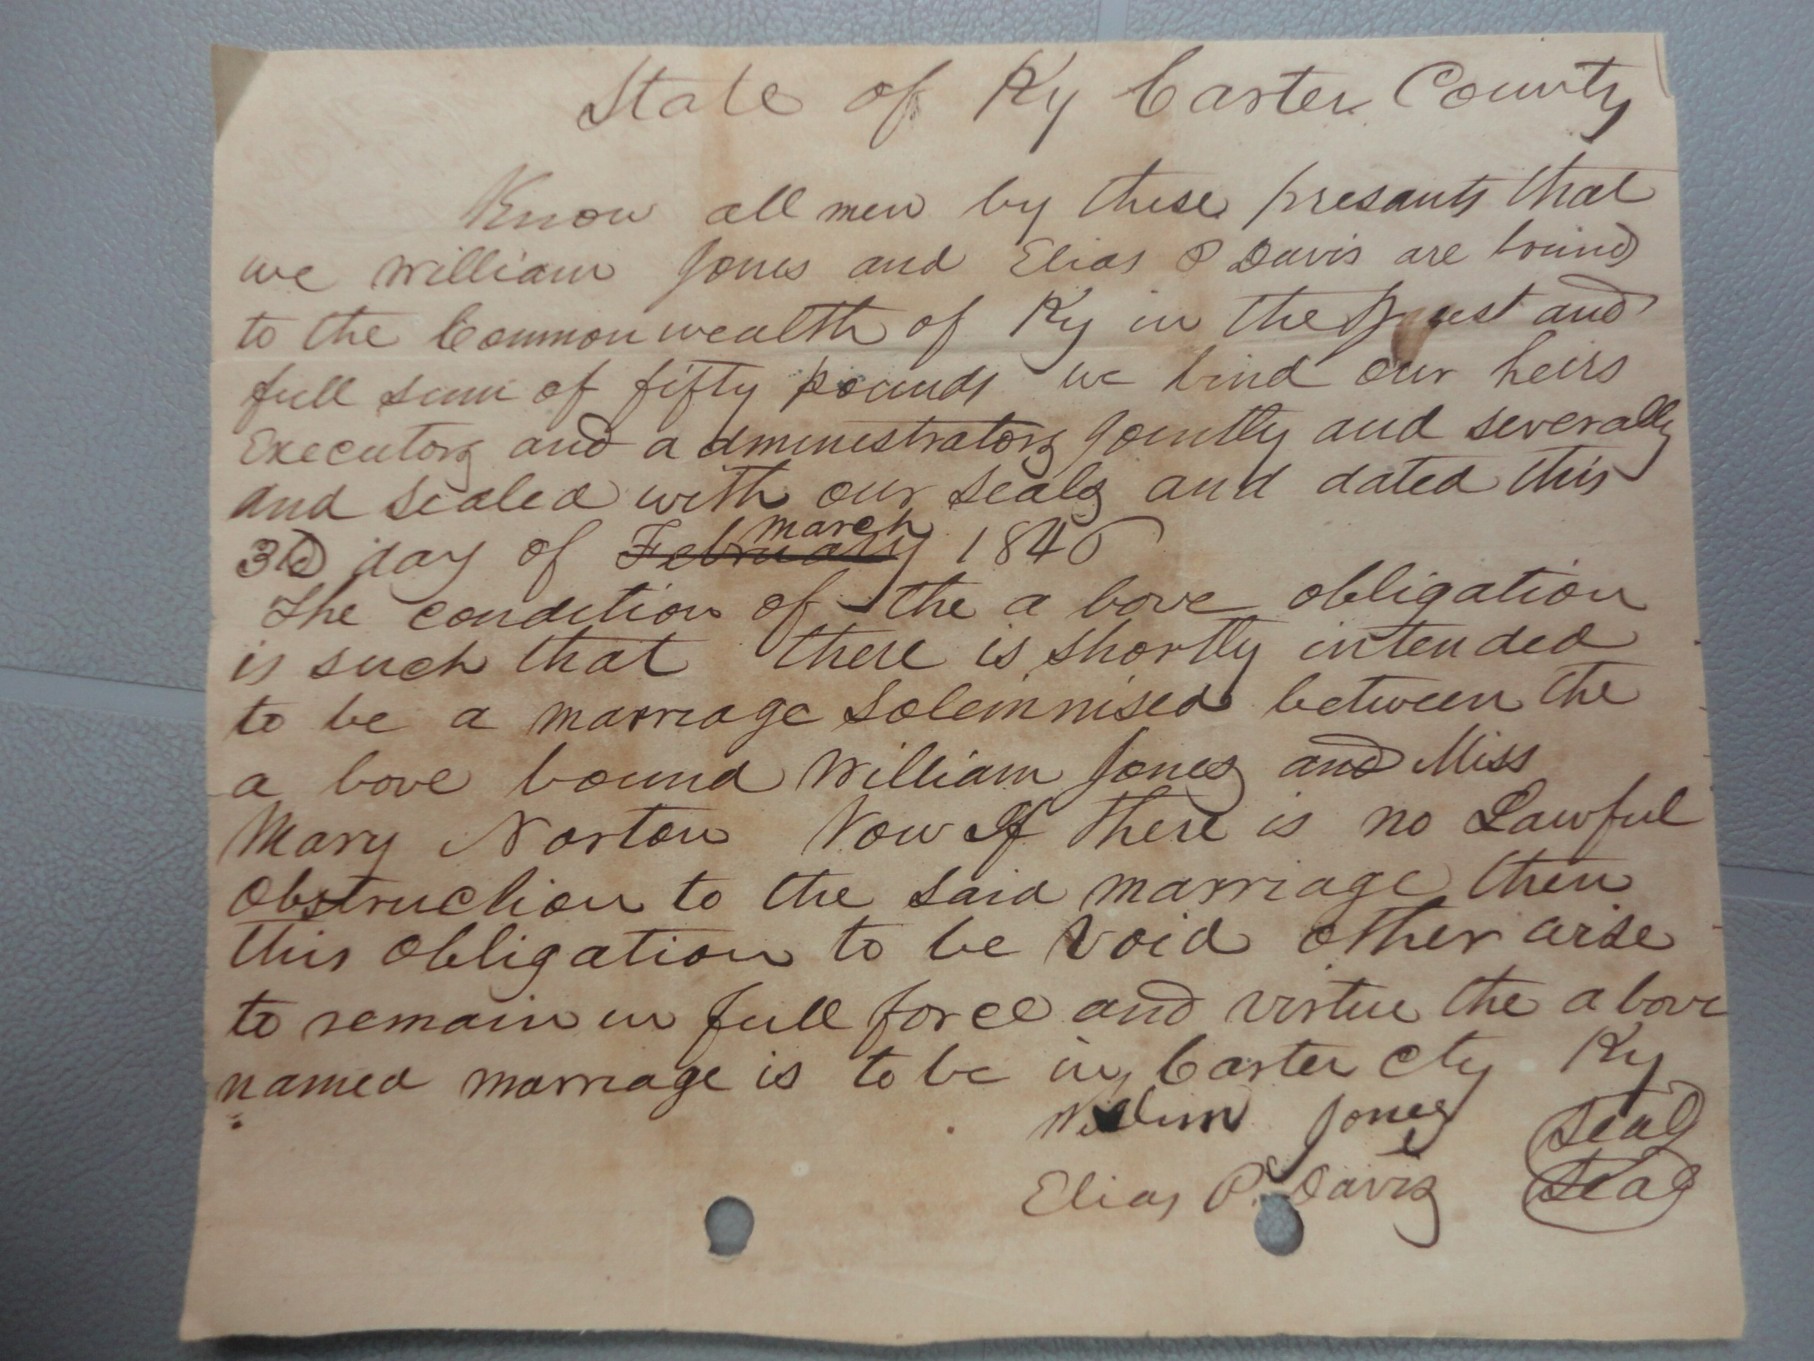 State of Ky Carter County
Know all men by these presants that
we William Jones and Elias P Davis are bound
to the Commonwealth of Ky in the just and
full sum of fifty pounds we bind our heirs
Executors and administrators Jointly and severally
and sealed with our seals and dated this
3rd day of February march 1846
The condition of the a bove obligation
is such that there is shortly intended
to be a marriage Solemnised between the
a bove bound William Jones and Miss
Mary Norton Now If there is no Lawful
Obstruction to the said marriage then
this obligation to be void other arise
to remain in full force and virtue the above
named marriage is to be in Carter Cty Ky
William Jones Seal
Elias P. Davis Seal